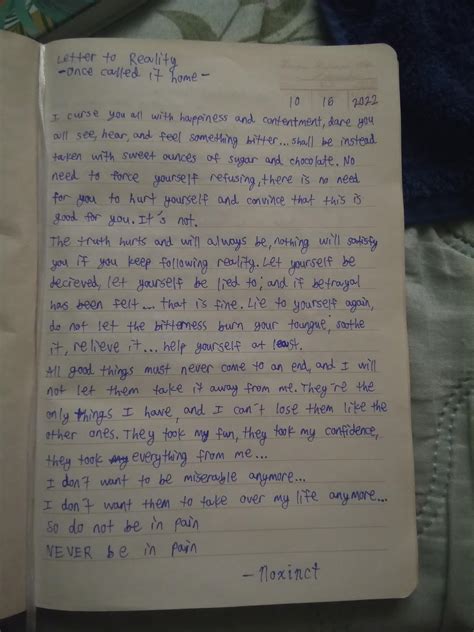 Letter to Reality
- once called it home -
10 16 2022
I curse you all with happiness and contentment, dare you
all see, hear, and feel something bitter... shall be instead
taken with sweet ounces of sugar and chocolate. No
need to force yourself refusing, there is no need
for you to hurt yourself and convince that this is
good for you. It's not.
The truth hurts and will always be, nothing will satisfy
you if you keep following reality. Let yourself be
decieved, let yourself be lied to; and if betrayal
has been felt... that is fine. Lie to yourself again,
do not let the bitterness burn your toungue, soothe
it, relieve it... help yourself at least.
All good things must never come to an end, and I will
not let them take it away from me. They're the
only things I have, and I can't lose them like the
other ones. They took my fun, they took my confidence,
they took my everything from me...
I don't want to be miserable anymore...
I don't want them to take over my life anymore...
So do not be in pain
NEVER be in pain
- Noxinct